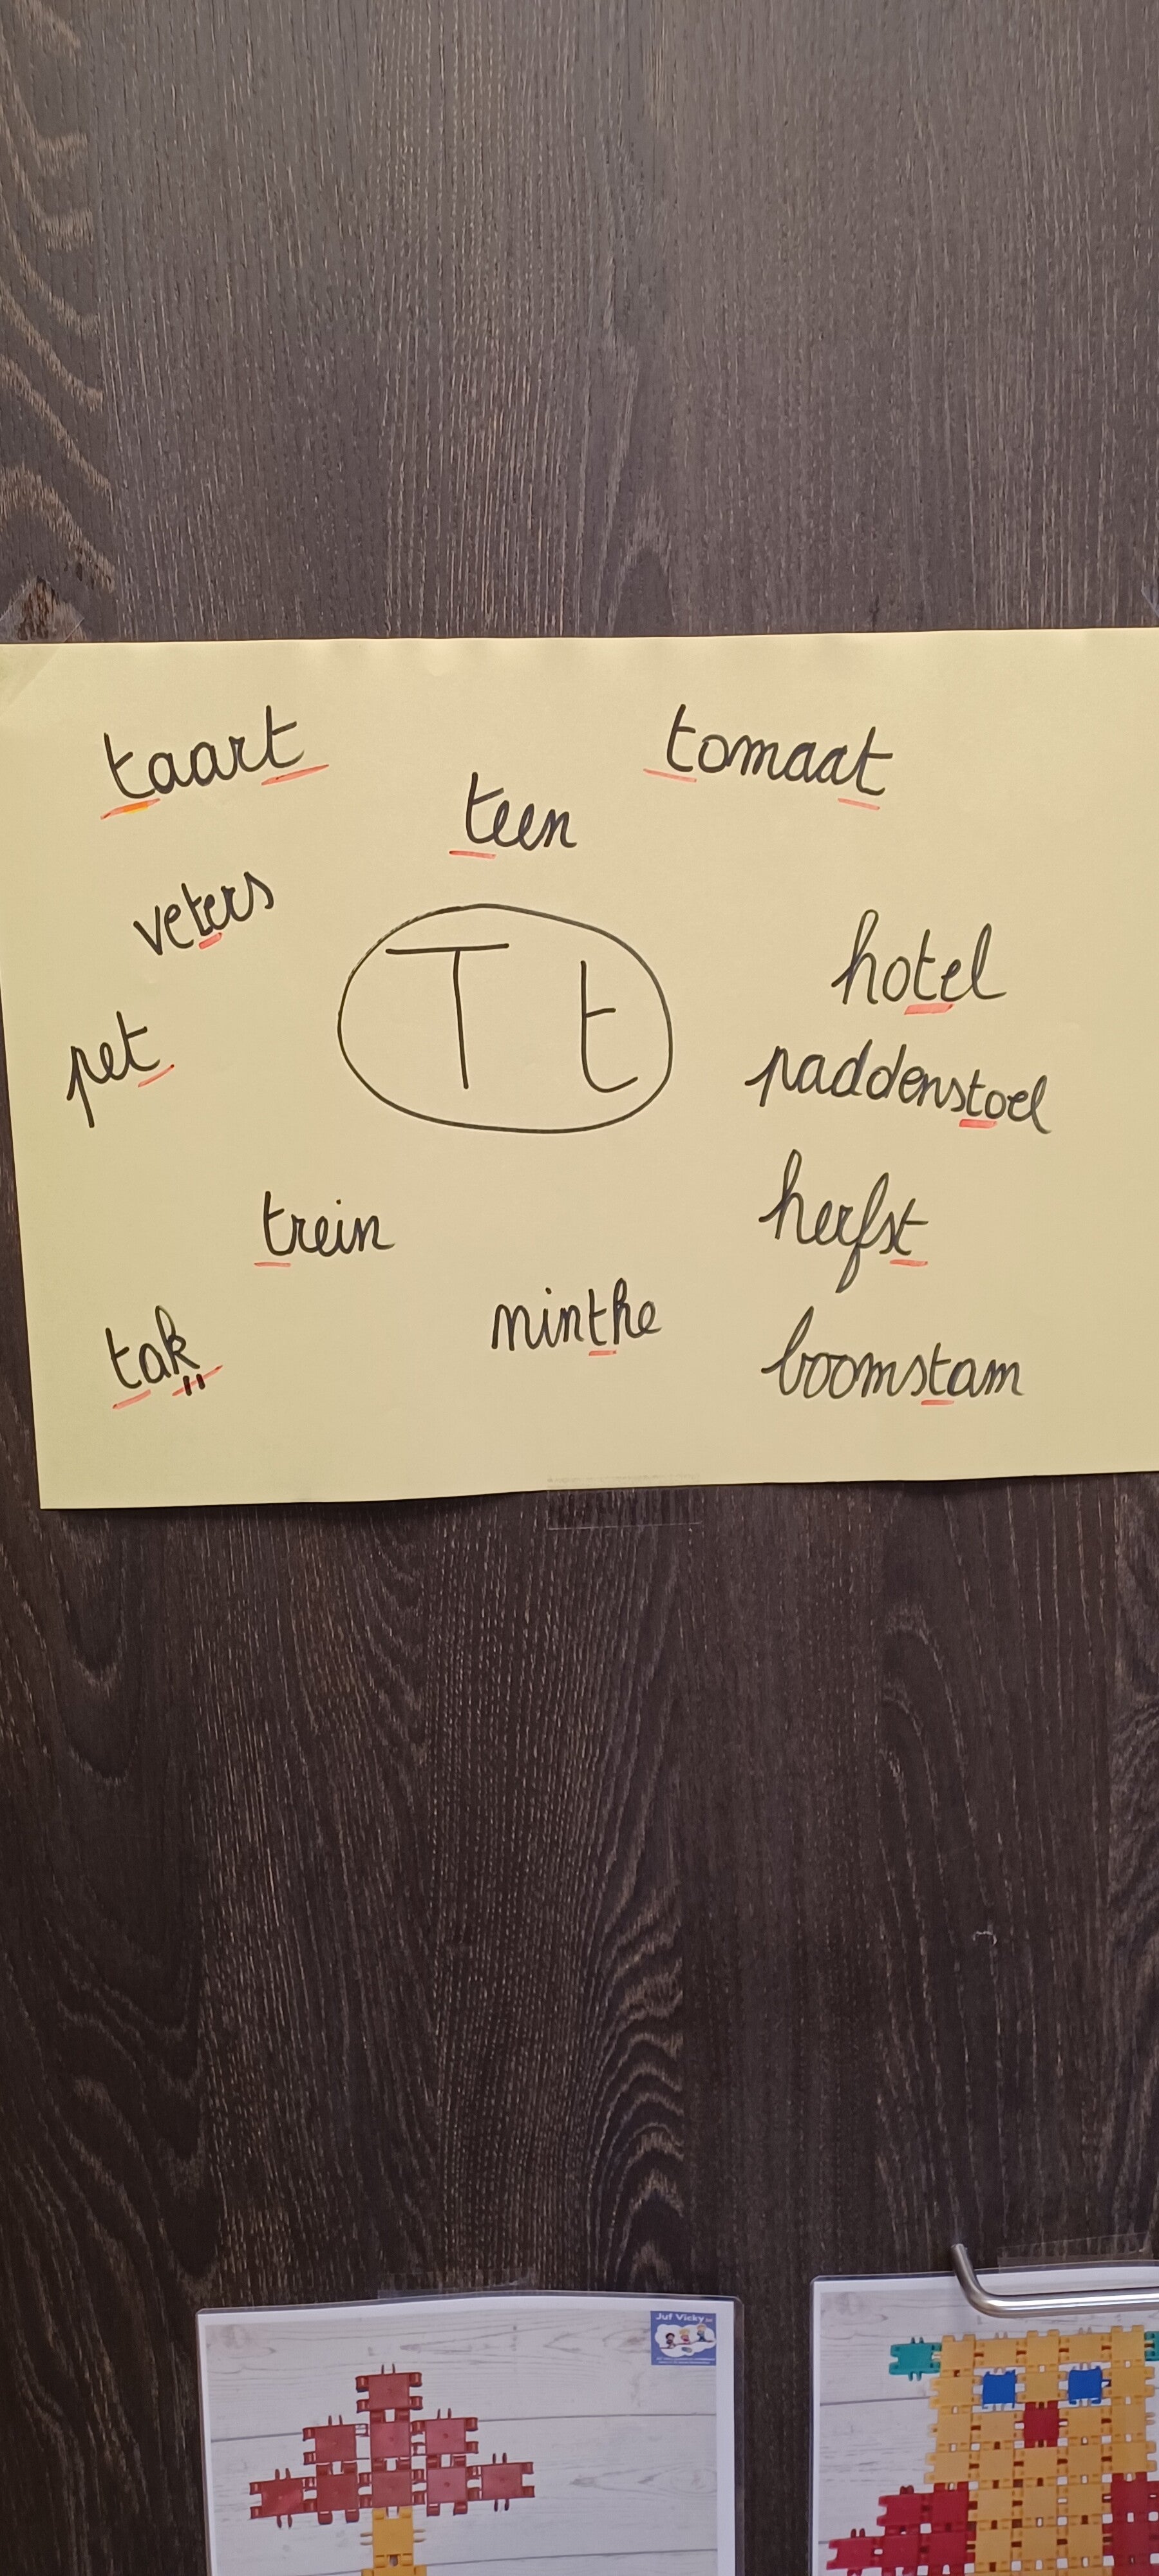 taart
tomaat
teen
veters
T t
hotel
pet
paddenstoel
trein
herfst
minthe
tak
boomstam
Juf Vicky